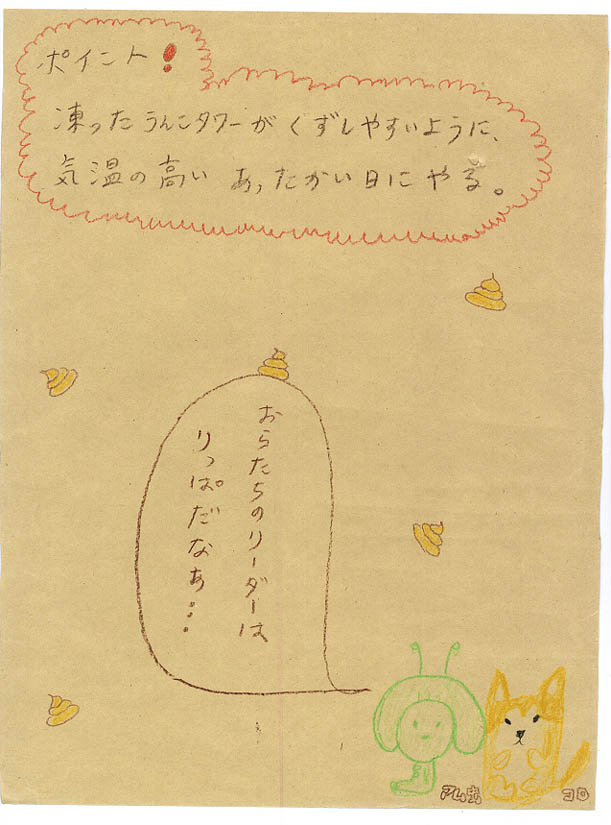 ポイント!
凍ったうんこタワーがくずしやすいように、
気温の高いあったかい日にやる。
おらたちのリーダーは
りっぱだなあ…
コロ